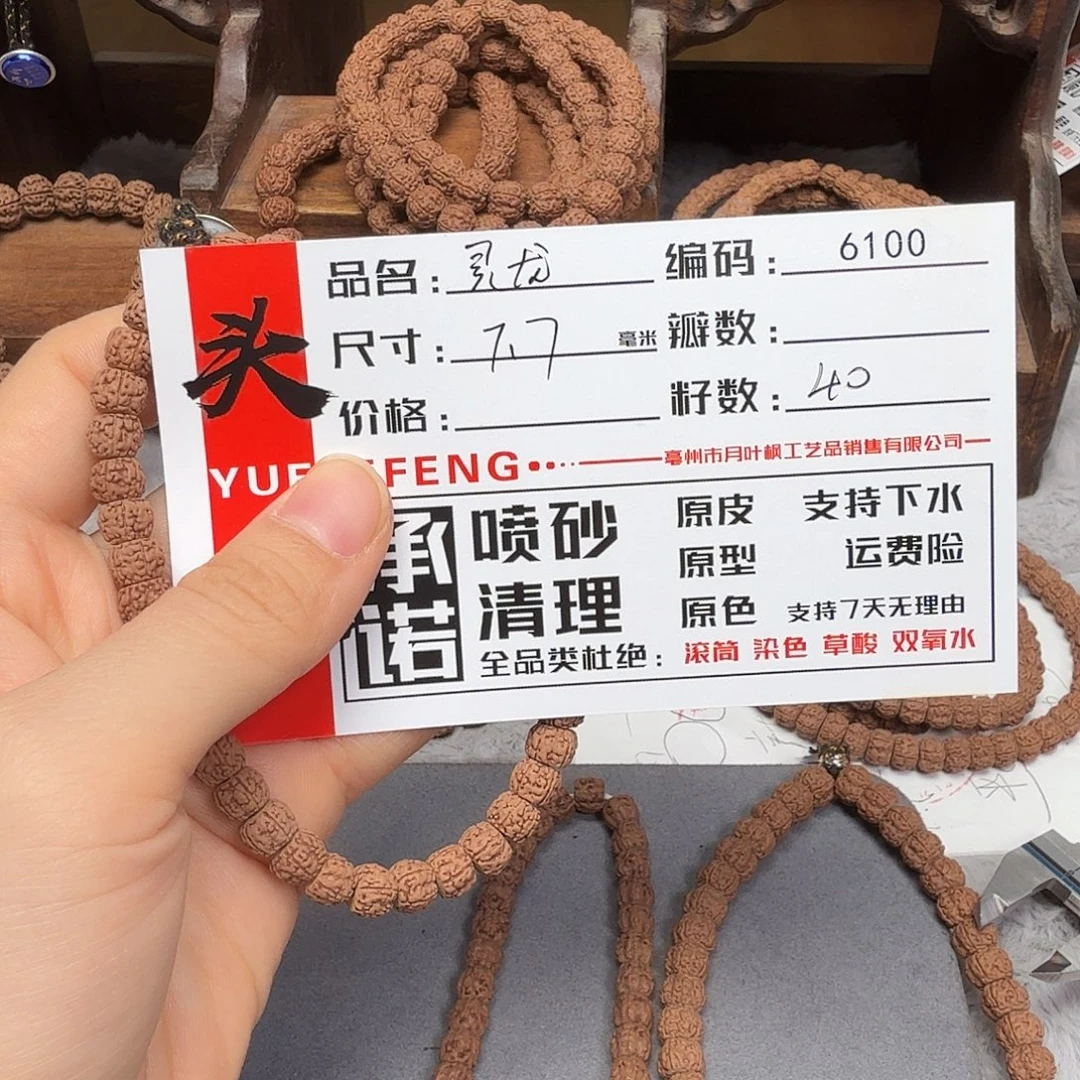 头
品名：灵龙 编码：6100
尺寸：7.7 毫米 瓣数：
价格： 籽数：40
YUE FENG 亳州市月叶枫工艺品销售有限公司
承诺
喷砂 清理
原皮 支持下水
原型 运费险
原色 支持7天无理由
全品类杜绝：滚筒 染色 草酸 双氧水